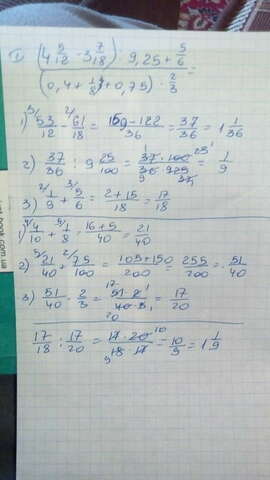 ① (4 5/12 - 3 7/18) : 9,25 + 5/6
(0,4 + 1/8 + 0,75) · 2/3 =
1) 53/12 - 61/18 = 159-122/36 = 37/36 = 1 1/36
2) 37/36 : 9 25/100 = 37·100/36·925 = 1/9
3) 1/9 + 5/6 = 2+15/18 = 17/18
1) 4/10 + 1/8 = 16+5/40 = 21/40
2) 21/40 + 75/100 = 105+150/200 = 255/200 = 51/40
3) 51/40 · 2/3 = 51·2/40·3 = 17/20
17/18 : 17/20 = 17·20/18·17 = 10/9 = 1 1/9